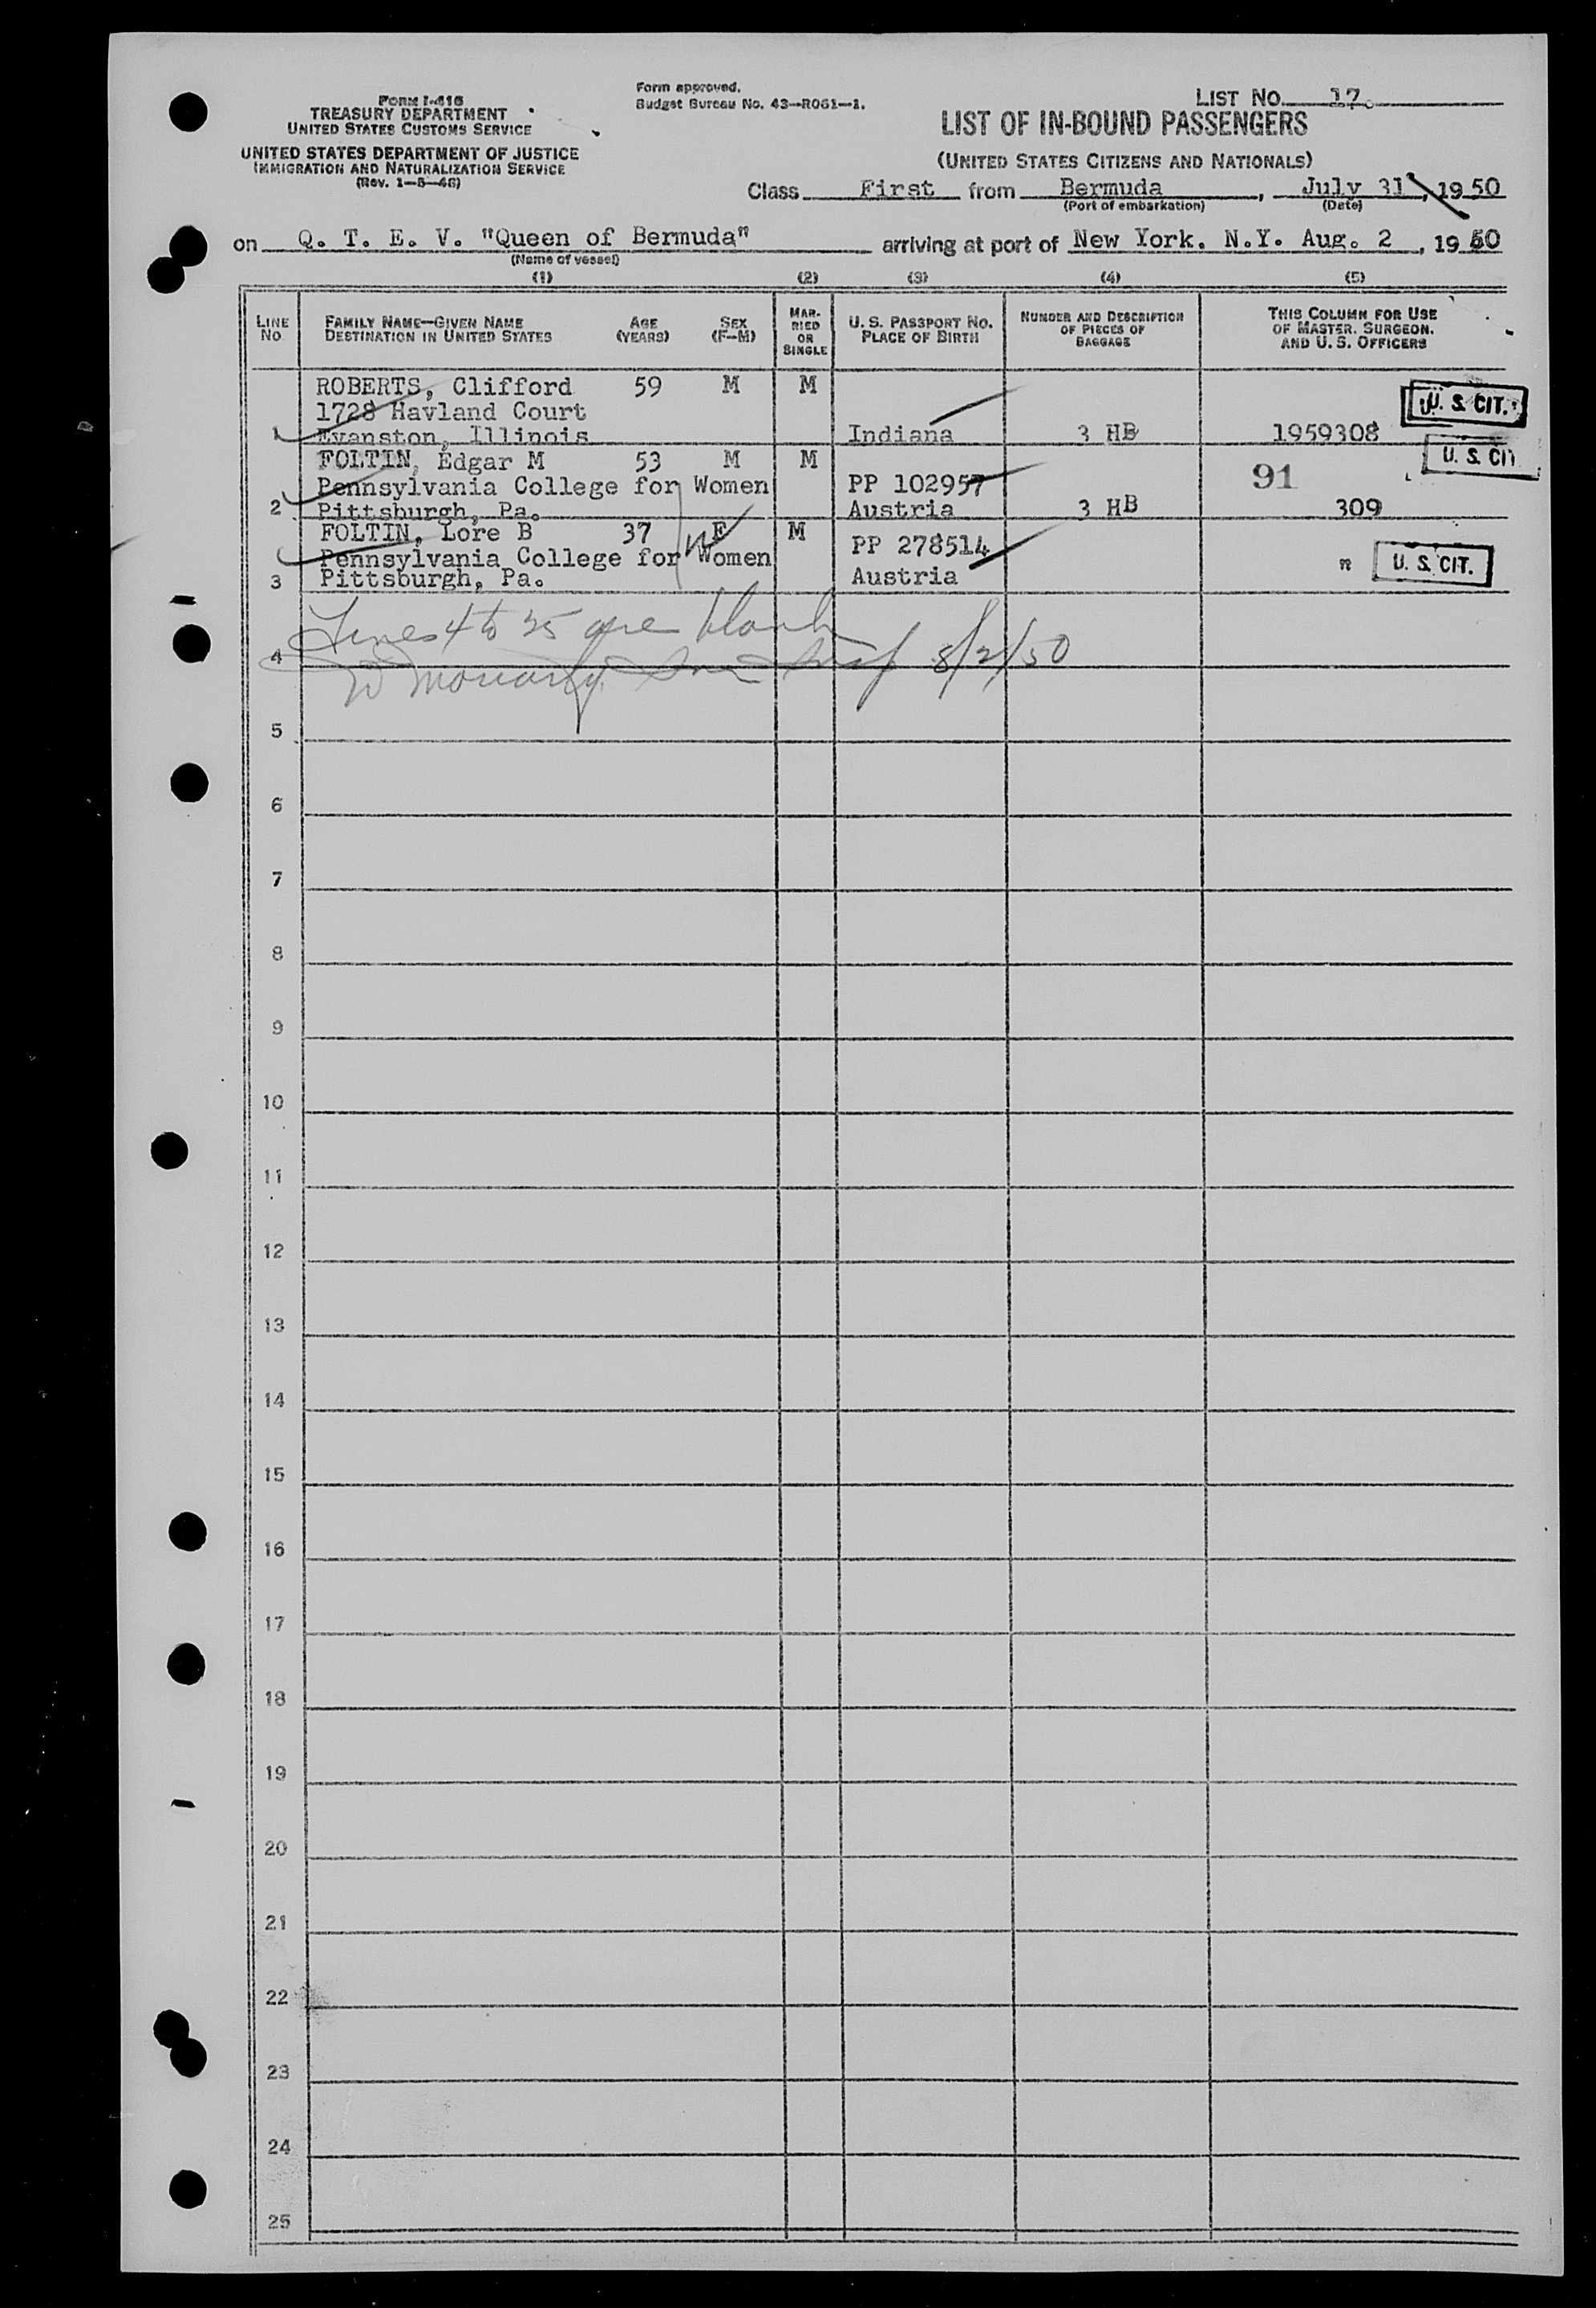 FORM I-416
TREASURY DEPARTMENT
UNITED STATES CUSTOMS SERVICE
UNITED STATES DEPARTMENT OF JUSTICE
IMMIGRATION AND NATURALIZATION SERVICE
(Rev. 1-5-48)
Form approved.
Budget Bureau No. 43-R061-1.
LIST NO. 17.
LIST OF IN-BOUND PASSENGERS
(UNITED STATES CITIZENS AND NATIONALS)
Class First from Bermuda, July 31, 1950
(Port of embarkation) (Date)
on Q. T. E. V. "Queen of Bermuda" arriving at port of New York, N.Y. Aug. 2, 1950
(Name of vessel)
(1) (2) (3) (4) (5)
LINE NO. FAMILY NAME—GIVEN NAME DESTINATION IN UNITED STATES AGE (YEARS) SEX (F-M) MARRIED OR SINGLE U. S. PASSPORT NO. PLACE OF BIRTH NUMBER AND DESCRIPTION OF PIECES OF BAGGAGE THIS COLUMN FOR USE OF MASTER, SURGEON, AND U. S. OFFICERS
ROBERTS, Clifford 59 M M U. S. CIT.
1728 Havland Court
1 Evanston, Illinois Indiana 3 HB 1959308
FOLTIN, Edgar M 53 M M U. S. CIT
Pennsylvania College for Women PP 102957 91
2 Pittsburgh, Pa. Austria 3 HB 309
FOLTIN, Lore B 37 F M PP 278514
Pennsylvania College for Women " U. S. CIT.
3 Pittsburgh, Pa. Austria
Lines 4 to 25 are blank
4
8/2/50
5
6
7
8
9
10
11
12
13
14
15
16
17
18
19
20
21
22
23
24
25